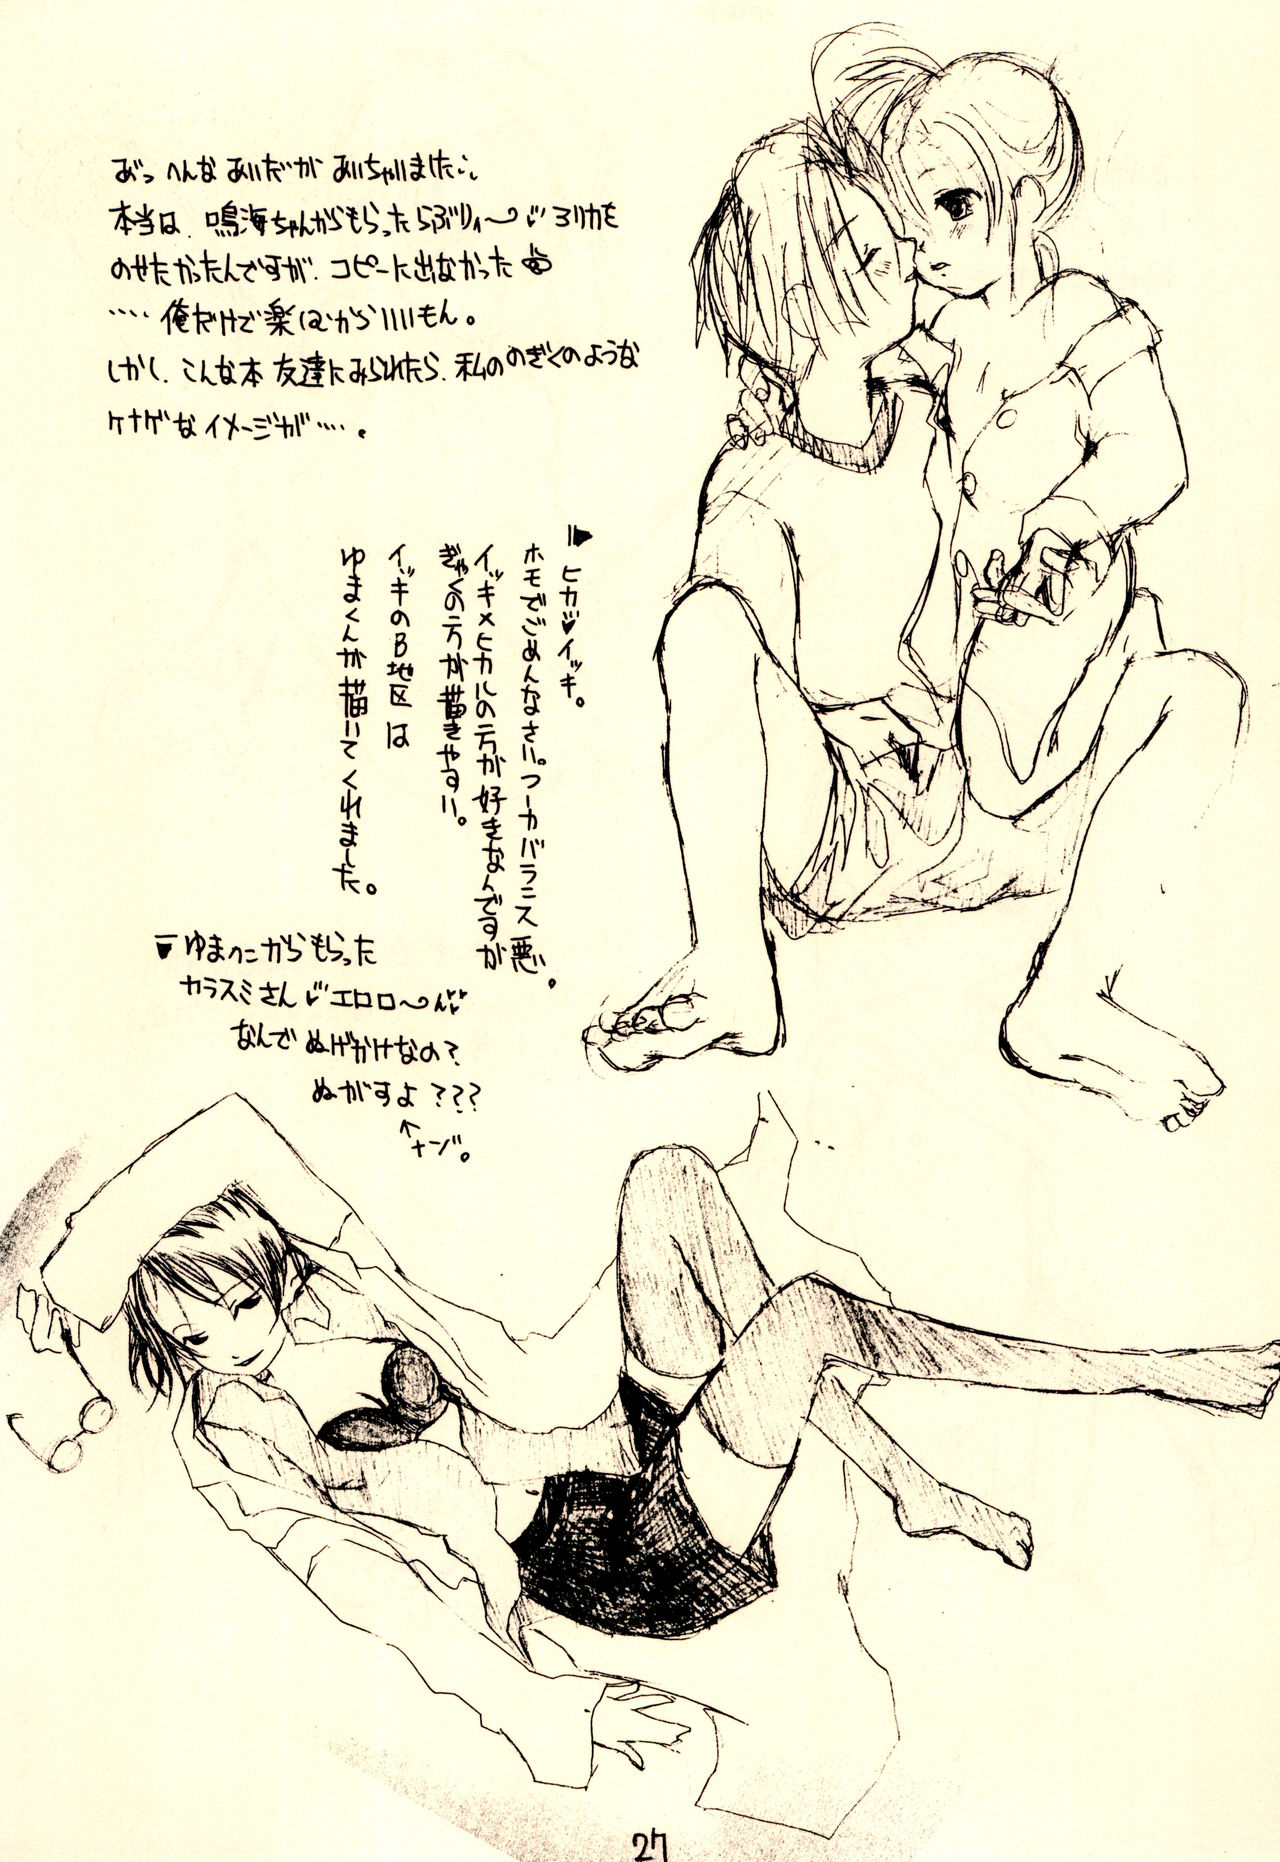 あっ へんな あいだが あいちゃいました
本当は、鳴海ちゃんからもらった らぶりぃ〜♡ ヨリカを
のせたかったんですが、コピーに出なかった
‥‥俺だけで楽しむからいいもん。
しかし、こんな本 友達にみられたら、私ののぎくのような
ケナゲなイメージが‥‥。
ヒカ♡イッキ。
ホモでごめんなさい。つーかバランス悪い。
イッキ×ヒカルの方が好きなんですが
ぎゃくの方が描きやすい。
イッキのB地区は
ゆまくんが描いてくれました。
ゆまへこからもらった
カラスミさん♡エロロ〜ん♡♡
なんで ぬげかけなの?
ぬがすよ???
↑ナゾ。
27